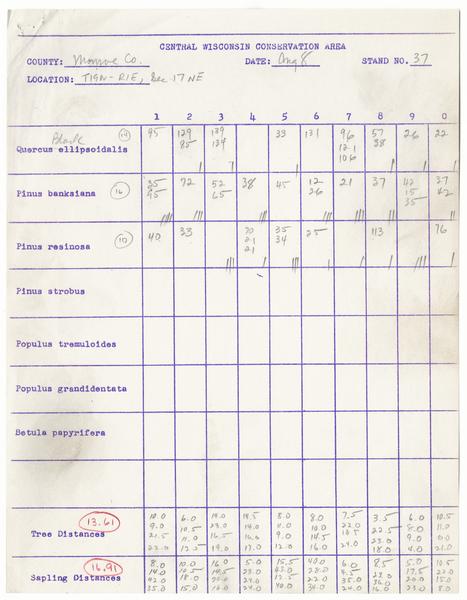 CENTRAL WISCONSIN CONSERVATION AREA
COUNTY: Monroe Co. DATE: Aug 8 STAND NO. 37
LOCATION: T19N-R1E, Sec 17 NE
1 2 3 4 5 6 7 8 9 0
Black
Quercus ellipsoidalis
95 129 139 33 131 96 57 26 22
85 134 121 38
106
Pinus banksiana 16
35 72 52 38 45 12 21 37 42 37
95 65 26 15 42
35
Pinus resinosa 10
40 33 70 35 25 113 76
21 34
21
Pinus strobus
Populus tremuloides
Populus grandidentata
Betula papyrifera
13.61
Tree Distances
10.0 6.0 14.5 8.0 8.0 7.5 3.5 6.0 10.5
9.0 10.5 23.0 14.0 11.0 9.0 22.0 22.5 8.0 11.0
21.5 11.0 16.5 16.0 11.0 14.5 10.5 23.0 9.0
23.0 12.5 19.0 17.0 12.0 16.0 24.0 18.0 4.0 21.0
16.91
Sapling Distances
8.0 10.0 16.0 5.0 15.5 40.0 6.0 8.5 5.0 10.5
14.0 10.5 14.5 23.0 43.0 28.0 4.5 15.0 17.5 22.0
42.0 18.0 24.0 12.5 22.0 35.0 36.0 20.0 15.0
35.0 15.0 16.0 24.0 40.0 34.0 24.0 16.0 23.0 8.0